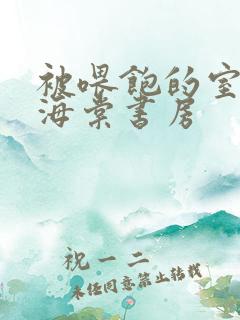 被喂饱的室
海棠书房
祝一二
未经同意禁止转载